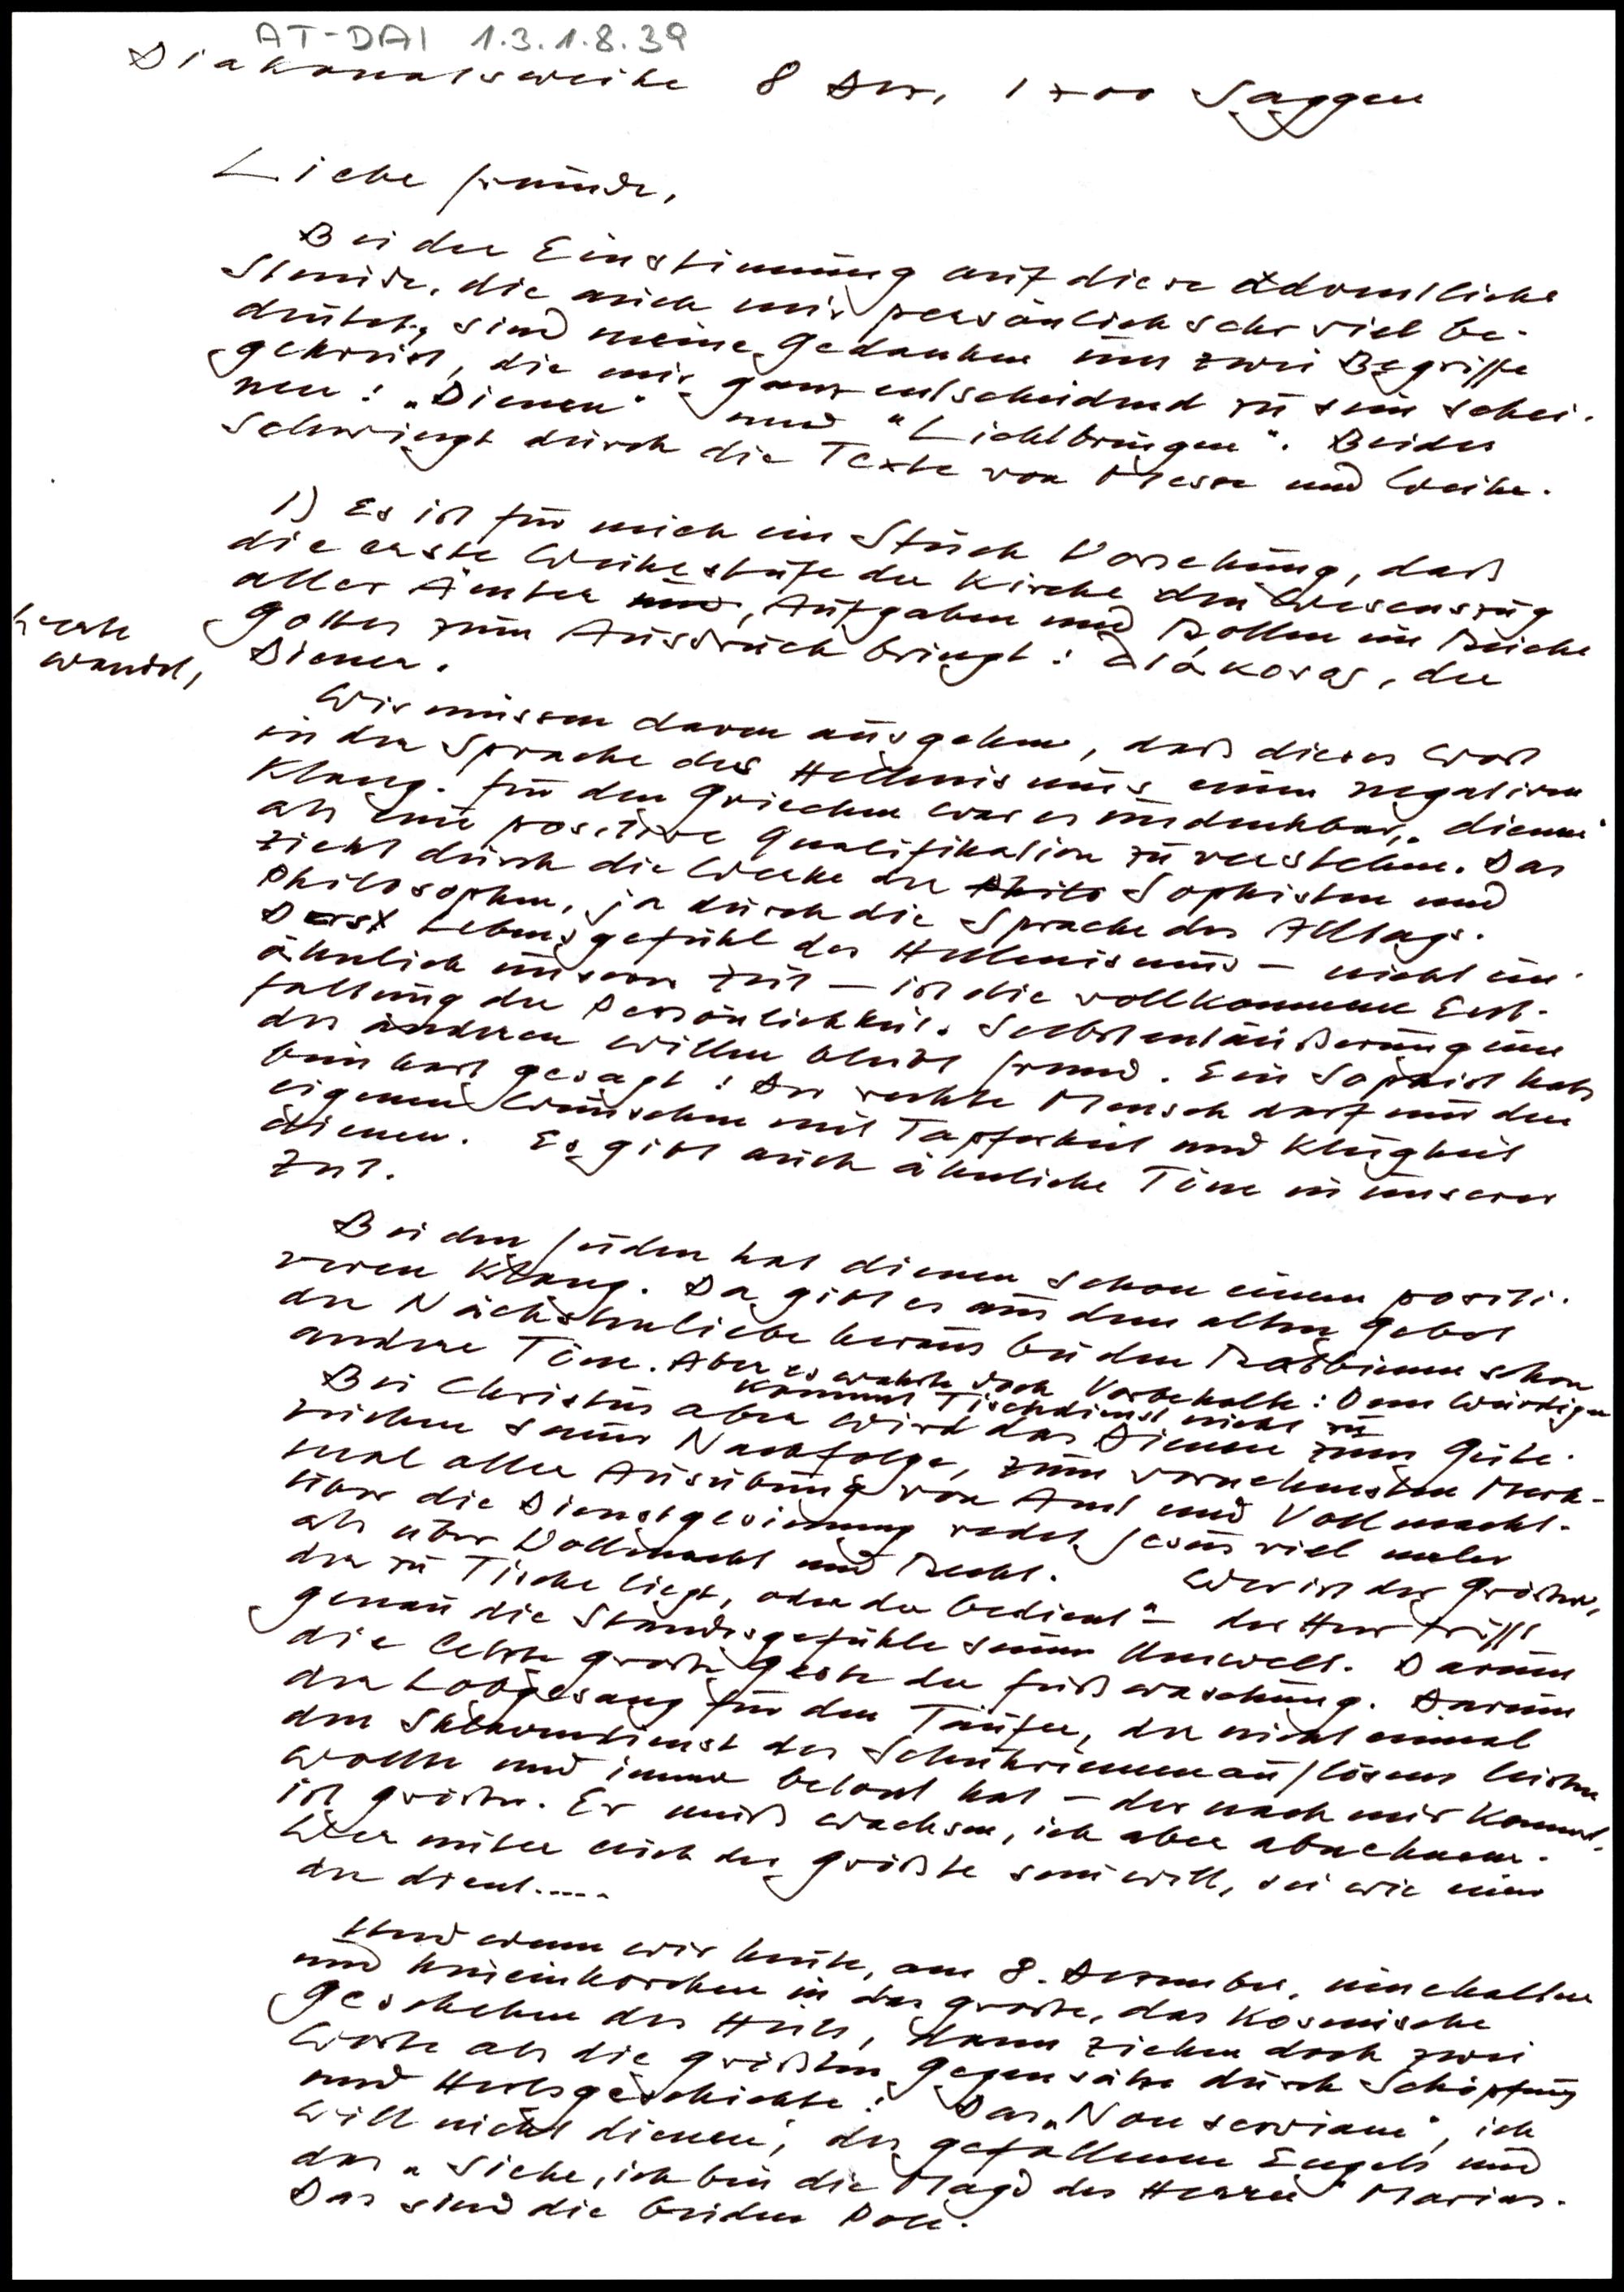 AT-DAI 1.3.1.8.39
Diakonatsweihe 8 Dez, 1700 Saggen
Liebe Freunde,
Bei der Einstimmung auf diese adventliche
Stunde, die auch mir persönlich sehr viel be-
deutet, sind meine Gedanken um zwei Begriffe
gekreist, die mir ganz entscheidend zu sein schei-
nen: „Dienen" und "Lichtbringen". Beides
schwingt durch die Texte von Messe und Weihe.
1) Es ist für mich ein Stück Vorsehung, daß
die erste Weihestufe der Kirche den Wesenszug
aller Ämter und, Aufgaben und Rollen im Reiche
Gottes zum Ausdruck bringt: διάκονος, der
Diener.
Wir müssen davon ausgehen, daß dieses Wort
in der Sprache des Hellenismus einen negativen
Klang. Für den Griechen war es undenkbar, „dienen"
als eine positive Qualifikation zu verstehen. Das
zieht durch die Werke der Philo Sophisten und
Philosophen, ja durch die Sprache des Alltags.
Das Lebensgefühl des Hellenismus – nicht un-
ähnlich unserer Zeit – ist die vollkommene Ent-
faltung der Persönlichkeit. Selbstentäußerung um
des anderen willen bleibt fremd. Ein Sophist hats
beinhart gesagt: Der rechte Mensch darf nur den
eigenen Wünschen mit Tapferkeit und Klugheit
dienen. Es gibt auch ähnliche Töne in unserer
Zeit.
Bei den Juden hat dienen schon einen positi-
veren Klang. Da gibt es aus dem alten Gebot
der Nächstenliebe heraus bei den Rabbinern schon
andere Töne. Aber es wahrte doch Vorbehalte: Dem Würdigen
kommt Tischdienst nicht zu
Bei Christus aber wird das Dienen zum Güte-
zeichen seiner Nachfolge, zum vornehmsten Merk-
mal aller Ausübung von Amt und Vollmacht.
Über die Dienstgesinnung redet Jesus viel mehr
als über Vollmacht und Recht. Wer ist der Größere,
der zu Tische liegt, oder der bedient" – der Herr trifft
genau die Standesgefühle seiner Umwelt. Darum
die letzte große Geste der Fußwaschung. Darum
der Lobgesang für den Täufer, der nicht einmal
den Sklavendienst des Schuhriemenau/lösens leisten
wollte und immer betont hat – der nach mir kommt,
ist größer. Er muß wachsen, ich aber abnehmen.
Wer unter euch der größte sein will, sei wie einer
der dient.....
Und wenn wir heute, am 8. Dezember, innehalten
und hineinhorchen in das große, das kosmische
Geschehen des Heils, dann ziehen doch zwei
Worte als die größten Gegensätze durch Schöpfung
und Heilsgeschichte: Das „Non serviam", ich
will nicht dienen, des gefallenen Engels und
das „Siehe, ich bin die Magd des Herrn" Marias.
Das sind die beiden Pole.